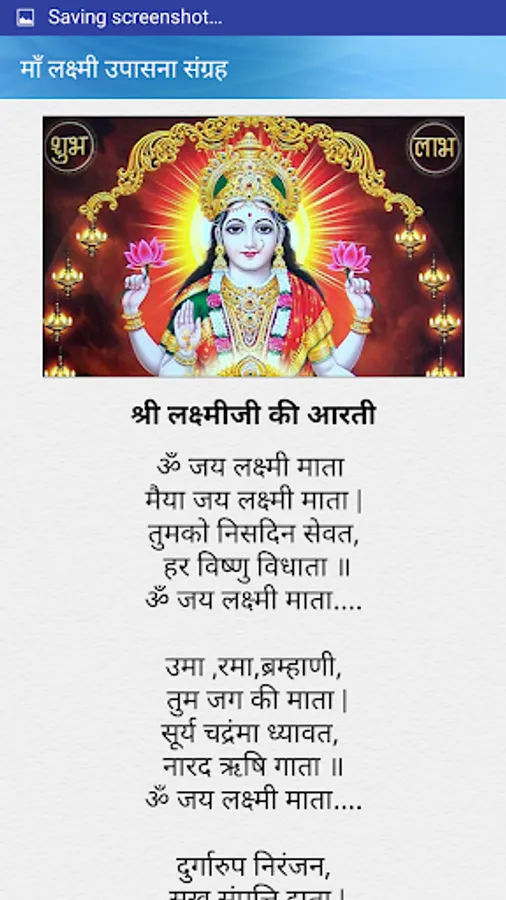 Saving screenshot...
माँ लक्ष्मी उपासना संग्रह
शुभ
लाभ
श्री लक्ष्मीजी की आरती
ॐ जय लक्ष्मी माता
मैया जय लक्ष्मी माता |
तुमको निसदिन सेवत,
हर विष्णु विधाता ॥
ॐ जय लक्ष्मी माता....
उमा ,रमा,ब्रम्हाणी,
तुम जग की माता |
सूर्य चद्रंमा ध्यावत,
नारद ऋषि गाता ॥
ॐ जय लक्ष्मी माता....
दुर्गारुप निरंजन,
सुख संपत्ति दाता |